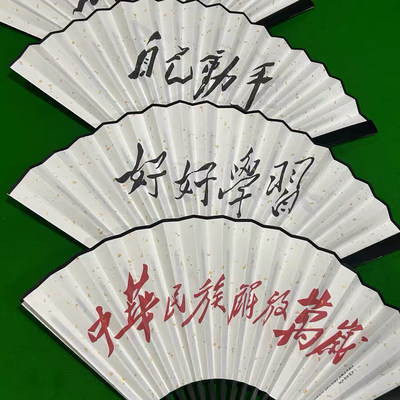 自己動手
好好學習
中華民族解放萬歲